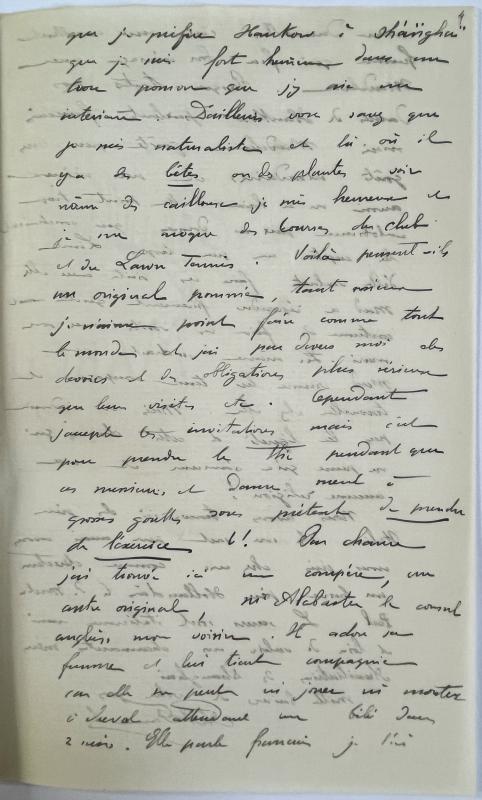 4
que je préfère Hankow à Shanghai
que je suis fort heureux dans un
trou pourvu que j'y aie un
intérieur D'ailleurs vous savez que
je suis naturaliste et là où il
y a des bêtes ou des plantes voir
même des cailloux je suis heureux et
je me moque des courses du club
et du Lawn Tennis. Voilà pensent-ils
un original pommé, tant
j'aime point faire comme tout
le monde et j'ai par devers moi des
devoirs et des obligations plus sérieux
que leurs visites etc. Cependant
j'accepte les invitations mais c'est
pour prendre le thé pendant que
ces messieurs et dames suent à
grosses gouttes sous prétexte de prendre
de l'exercice !! Par chance
j'ai trouvé ici un compère, un
autre original, Mr Alabaster le consul
anglais, mon voisin. Il adore sa
femme et lui tient compagnie
car elle ne peut ni jouer ni monter
à cheval attendant un bébé dans
2 mois. Elle parle français je l'ai